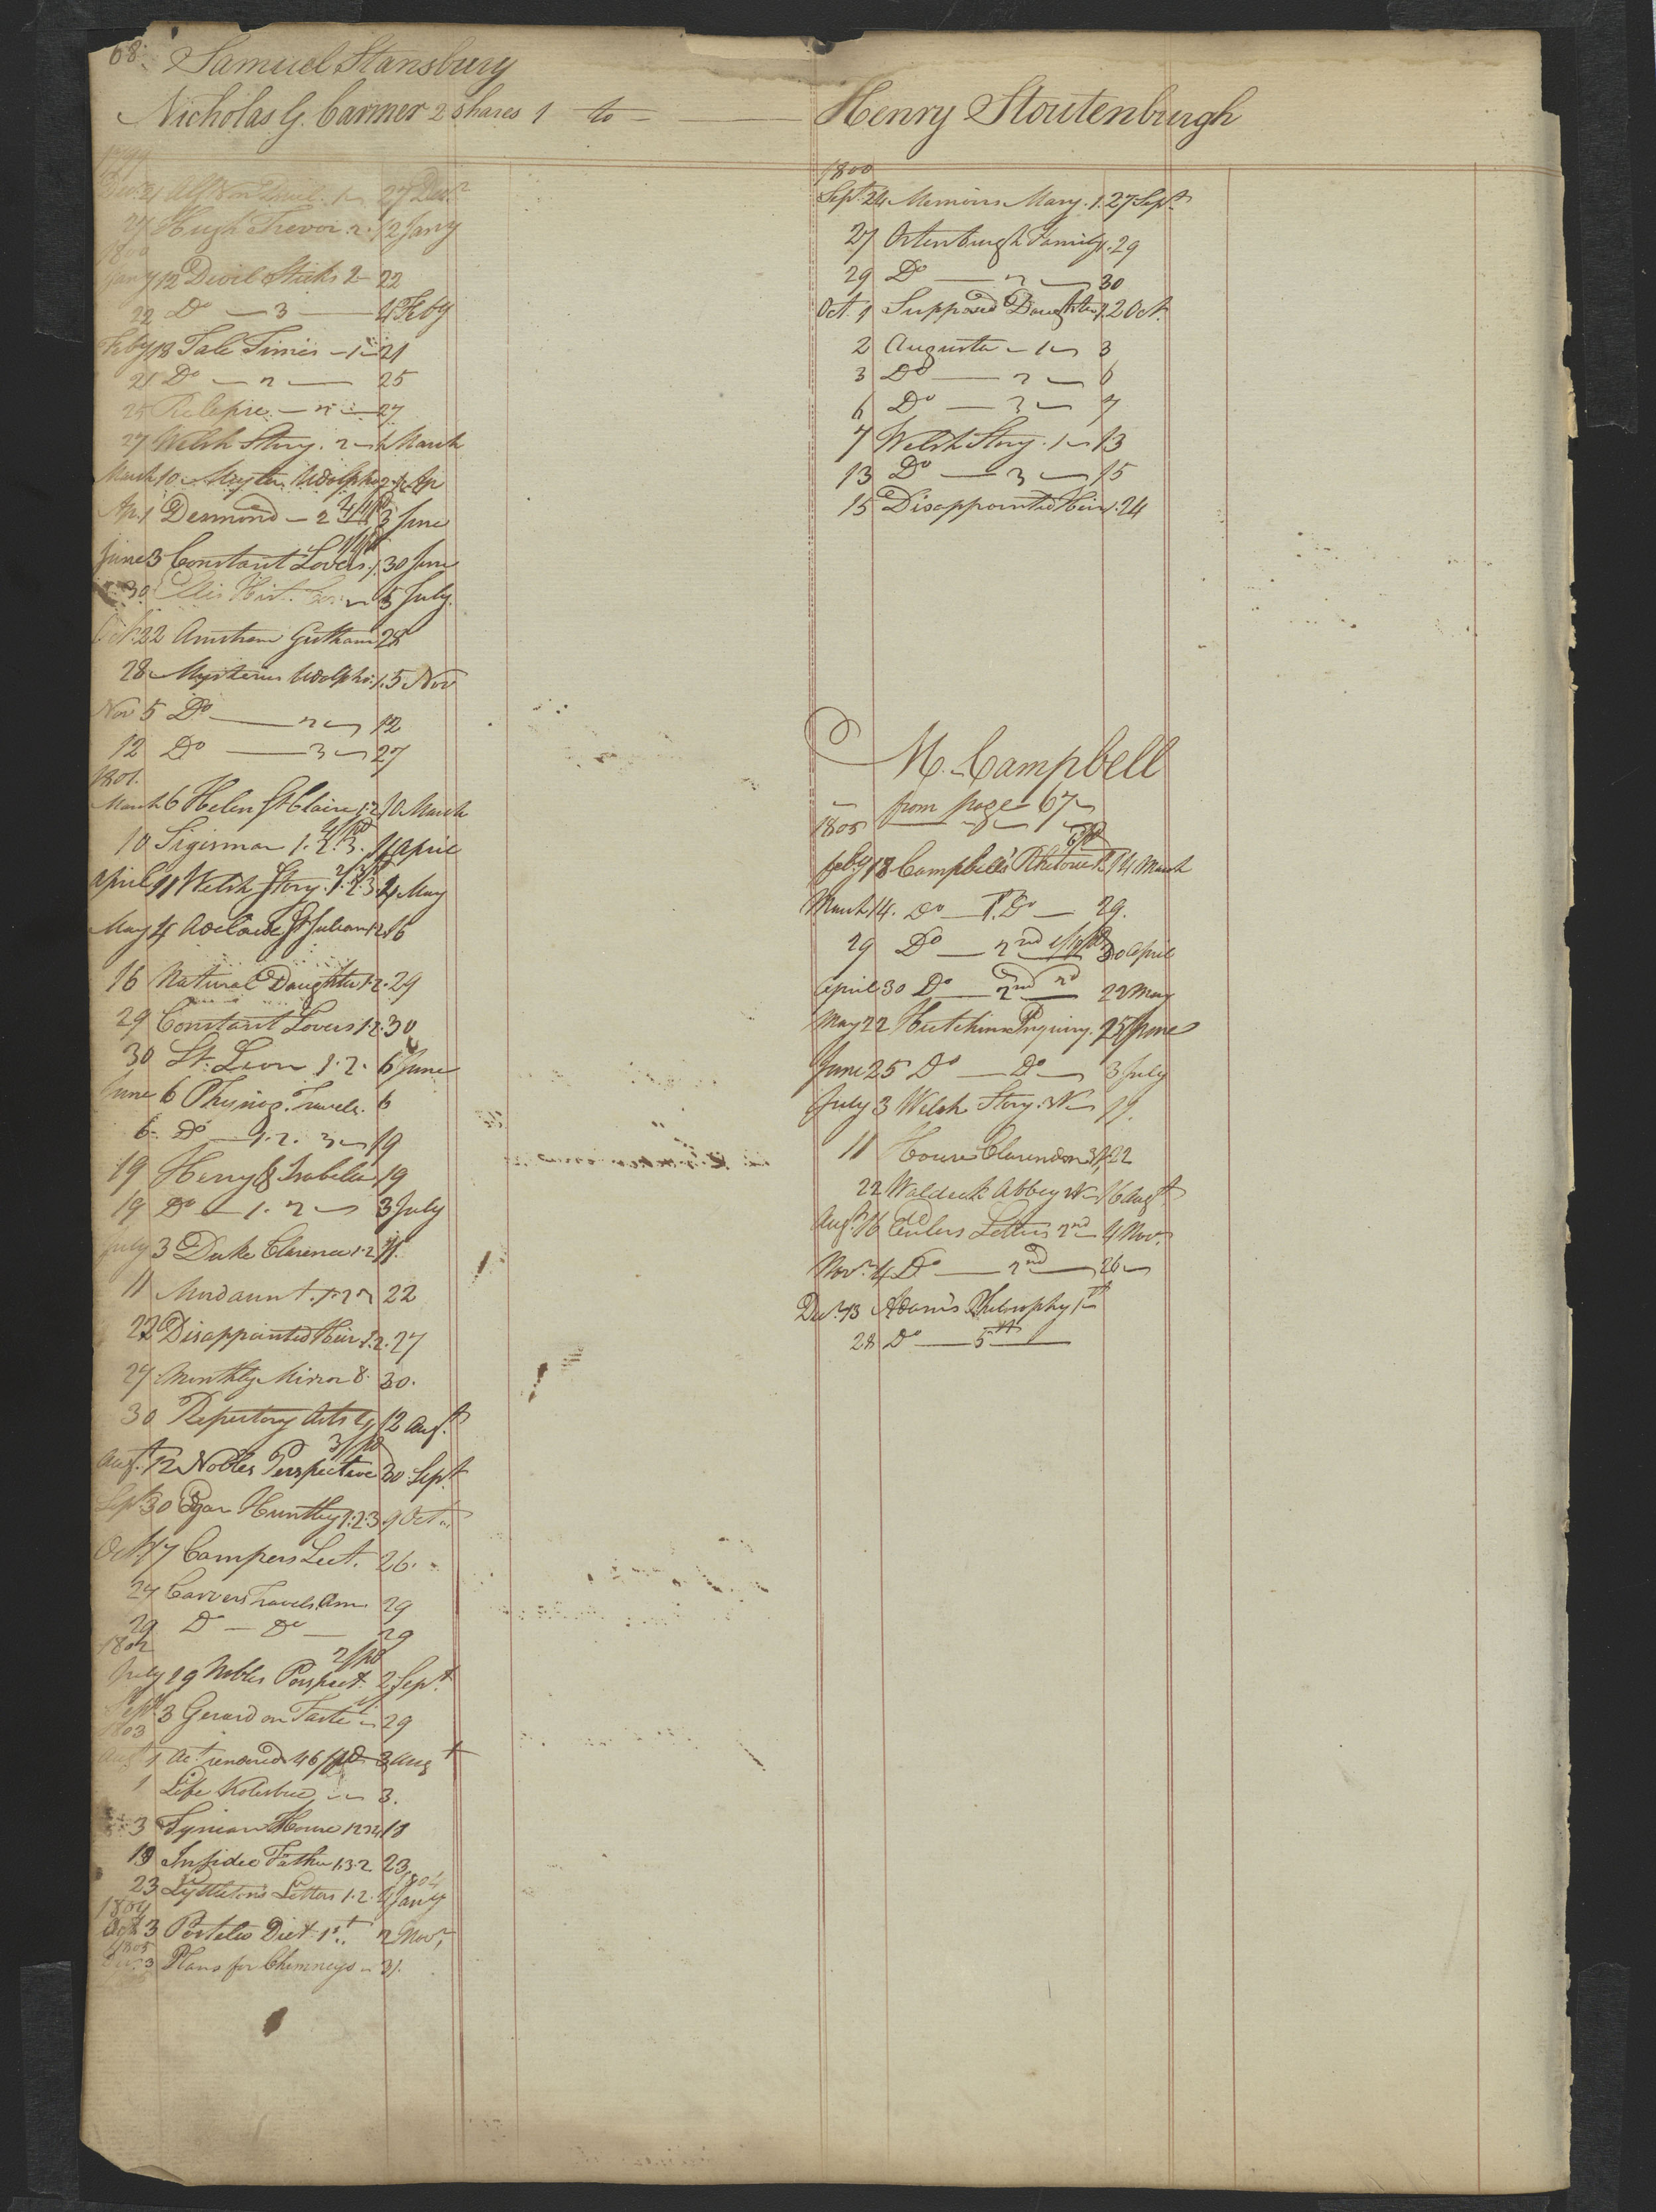 68. Samuel Stansbury
Nicholas G. Carmer 2 shares 1 to — Henry Stoutenburgh
1799
Dec. 21 1 27 Decr
27 Hugh Trevor . 2 . 12 Jany
1800
Jany 12 Devil Sticks 2 22
22 Do — 3 — 4 Feby
Feby 18 Tale Times — 1 — 21
21 Do — 2 — 25
25 Relapse — 2 — 27
27 Welsh Story . 2 — March
March 10 Myster Udolpho 2 1 Ap
Ap. 1 Desmond — 2 3 June
June 3 Constant Lovers . 1 . 30 June
30 Hist. 5 July
Oct. 22 28
28 Mysteries Udolpho . 1 . 5 Nov
Nov 5 Do — 2 — 12
12 Do — 3 — 27
1801.
March 6 Helen St Claire 1.2 10 March
10 Sigismar 1. 2. 3. 11 April
April 11 Welsh Story . 1. 2. 3. 4 May
May 4 Adelaide St Julian 1.2 16
16 Natural Daughter 1.2. 29
29 Constant Lovers 1.2. 30
30 St. Leon 1. 2. 6 June
June 6 Physiog. Travels. 6
6. Do — 1. 2. 3 — 19
19 Henry & Isabella 19
19 Do — 1. 2 — 3 July
July 3 Duke Clarence 1.2 11.
11 Mordaunt . 1. 2 22
22 Disappointed Heir 1. 2. 27
27 Monthly Mirror 8. 30.
30 Repertory Arts 12 Augt
3/pd
Augt. 12 Nobles Perspective 30 Sept.
Sept. 30 Edgar Huntley 1. 2. 3. 9 Oct
Oct. 17 Campers Lect. 26.
27 Carvers Travels. Am. 29
29 Do — Do — 29
1802
2/pd
July 19 Nobles Perspect. 2 Sept.
Sept. 3 Gerard on Taste 29
1803
Augt 1 Act rendered 46/pd 3 Augt
1 Life Kotzebue 3.
3 Tynian House
13 Infidel Father 1. 3. 2. 23
23 Lyttleton's Letters 1. 2. 4 Jany 1804
1804
Oct 3 Postel's Dict. 1st. 2 Novr.
1805
Decr. 3 Plans for Chimneys 31.
1800
Sept. 24 Memoirs Mary . 1. 27 Sept.
27 Ortenburgh Family . 29
29 Do — 2 — 30
Oct. 1 Supposed Daughter 1. 2 Oct.
2 Augusta — 1 — 3
3 Do — 2 — 6
6 Do — 3 — 7
7 Welsh Story . 1 — 13
13 Do — 3 — 15
15 Disappointed Heir 1. 24
M. Campbell
from page 67
1805
6/pd
Feby 18 Campbell's Rhetoric 1. 14 March
March 14. Do — 1. Do — 29.
29 Do — 2nd 30 April
April 30 Do — 2nd — 22 May
May 22 Hutchinn Inquiry. 25 June
June 25 Do — Do — 3 July
July 3 Welsh Story. 11.
11 House Clarendon 22
22 Waldeck Abbey 16 Augt.
Augt. 16 Eulers Letters 2nd 4 Novr.
Novr. 4 Do — 2nd — 26
Decr. 13 Adam's Philosophy 1st
28 Do — 5th —